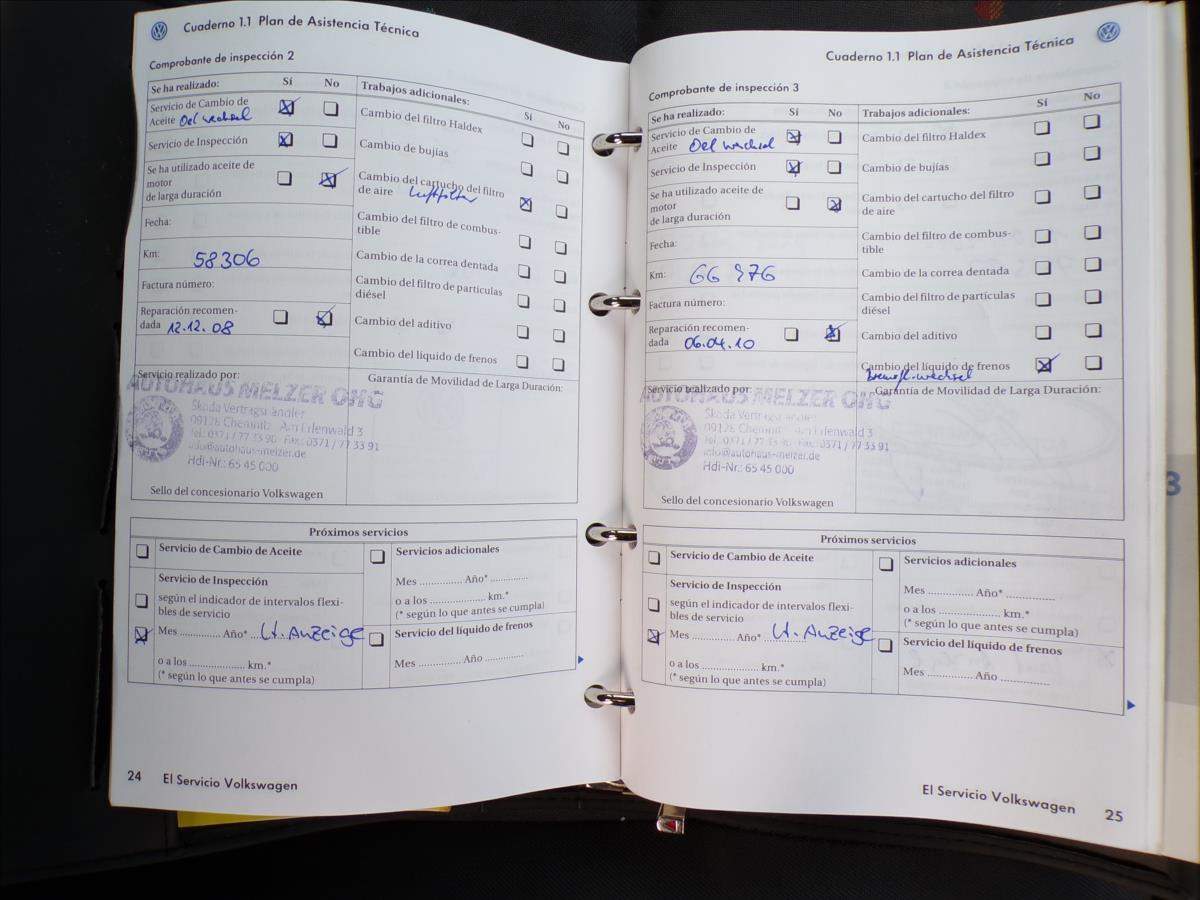 Cuaderno 1.1 Plan de Asistencia Técnica
Comprobante de inspección 2
Se ha realizado: Sí No
Servicio de Cambio de
Aceite Oel wechsel
Servicio de Inspección
Se ha utilizado aceite de
motor
de larga duración
Fecha:
Km: 58306
Factura número:
Reparación recomen-
dada 12.12.08
Trabajos adicionales: Sí No
Cambio del filtro Haldex
Cambio de bujías
Cambio del cartucho del filtro
de aire Luftfilter
Cambio del filtro de combus-
tible
Cambio de la correa dentada
Cambio del filtro de partículas
diésel
Cambio del aditivo
Cambio del líquido de frenos
Servicio realizado por:
AUTOHAUS MELZER OHG
Skoda Vertragshändler
09126 Chemnitz Am Erlenwald 3
Tel.: 0371 / 77 33 90 Fax: 0371 / 77 33 91
info@autohaus-melzer.de
Hdl-Nr.: 65 45 000
Sello del concesionario Volkswagen
Garantía de Movilidad de Larga Duración:
Próximos servicios
Servicio de Cambio de Aceite
Servicio de Inspección
según el indicador de intervalos flexi-
bles de servicio
Mes .............. Año* lt. Anzeige
o a los ..................... km.*
(* según lo que antes se cumpla)
Servicios adicionales
Mes .............. Año* .............
o a los ..................... km.*
(* según lo que antes se cumpla)
Servicio del líquido de frenos
Mes .............. Año .............
24 El Servicio Volkswagen
Cuaderno 1.1 Plan de Asistencia Técnica
Comprobante de inspección 3
Se ha realizado: Sí No
Servicio de Cambio de
Aceite Oel wechsel
Servicio de Inspección
Se ha utilizado aceite de
motor
de larga duración
Fecha:
Km: 66 976
Factura número:
Reparación recomen-
dada 06.04.10
Trabajos adicionales: Sí No
Cambio del filtro Haldex
Cambio de bujías
Cambio del cartucho del filtro
de aire
Cambio del filtro de combus-
tible
Cambio de la correa dentada
Cambio del filtro de partículas
diésel
Cambio del aditivo
Cambio del líquido de frenos
bremsfl. wechsel
Servicio realizado por:
AUTOHAUS MELZER OHG
Skoda Vertragshändler
09126 Chemnitz Am Erlenwald 3
Tel.: 0371 / 77 33 90 Fax: 0371 / 77 33 91
info@autohaus-melzer.de
Hdl-Nr.: 65 45 000
Sello del concesionario Volkswagen
Garantía de Movilidad de Larga Duración:
Próximos servicios
Servicio de Cambio de Aceite
Servicio de Inspección
según el indicador de intervalos flexi-
bles de servicio
Mes .............. Año* lt. Anzeige
o a los ..................... km.*
(* según lo que antes se cumpla)
Servicios adicionales
Mes .............. Año* .............
o a los ..................... km.*
(* según lo que antes se cumpla)
Servicio del líquido de frenos
Mes .............. Año .............
El Servicio Volkswagen 25
3